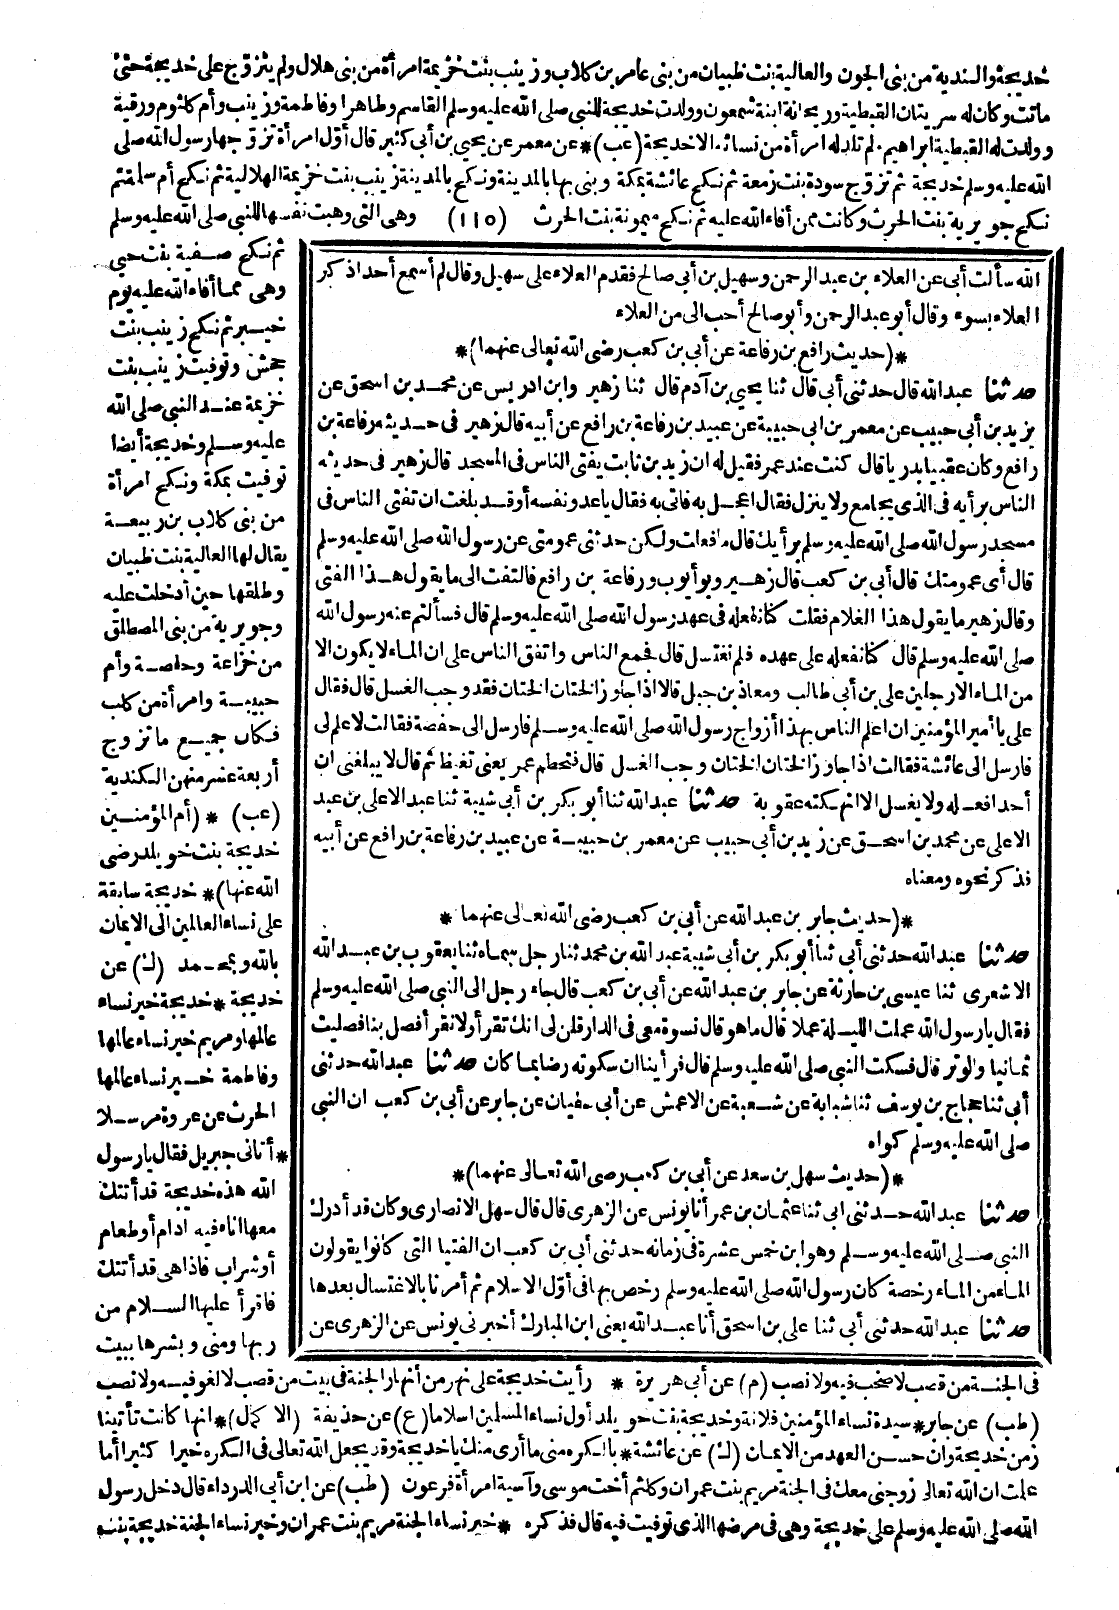 خديجة والندية من بنى الجون والعالية بنت ظبيان من بنى عامر بن كلاب وزينب بنت خزيمة امرأة من بنى هلال ولم يتزوّج على خديجة حتى
ماتت وكان له سريتان القبطية وريحانة ابنة شمعون وولدت خديجة للنبى صلى الله عليه وسلم القاسم وطاهرا وفاطمة وزينب وأم كلثوم ورقية
وولدت له القبطية ابراهيم ولم تلد له امرأة من نسائه الا خديجة (عب)* عن معمر عن يحيى بن أبى كثير قال أوّل امرأة تزوّجها رسول الله صلى
الله عليه وسلم خديجة ثم تزوّج سودة بنت زمعة ثم نكح عائشة بمكة وبنى بها بالمدينة ونكح بالمدينة زينب بنت خزيمة الهلالية ثم نكح أم سلمة ثم
نكح جويرية بنت الحرث وكانت ممن أفاء الله عليه ثم نكح ميمونة بنت الحرث (١١٥) وهى التى وهبت نفسها للنبى صلى الله عليه وسلم
ثم نكح صفية بنت حيى
وهى مما أفاء الله عليه يوم
خيبر ثم نكح زينب بنت
جحش وتوفيت زينب بنت
خزيمة عند النبى صلى الله
عليه وسلم وخديجة أيضا
توفيت بمكة ونكح امرأة
من بنى كلاب بن ربيعة
يقال لها العالية بنت ظبيان
وطلقها حين أدخلت عليه
وجويرية من بنى المصطلق
من خزاعة وحفصة وأم
حبيبة وامرأة من كلب
فكان جميع ما تزوج
أربعة عشر منهن الكندية
(عب) *(أم المؤمنين
خديجة بنت خويلد رضى
الله عنها)* خديجة سابقة
على نساء العالمين الى الايمان
بالله وبمحمد (ك) عن
خديجة * خديجة خير نساء
عالمها ومريم خير نساء عالمها
وفاطمة خير نساء عالمها
الحرث عن عروة مرسلا
* أتانى جبريل فقال يا رسول
الله هذه خديجة قد أتتك
معها اناء فيه ادام أو طعام
أو شراب فاذا هى قد أتتك
فاقرأ عليها السلام من
ربها ومنى وبشرها ببيت
الله سألت أبى عن العلاء بن عبد الرحمن وسهيل بن أبى صالح فقدم العلاء على سهيل وقال لم أسمع أحدا ذكر
العلاء بسوء وقال أبو عبد الرحمن وأبو صالح أحب الى من العلاء
*(حديث رافع بن رفاعة عن أبى بن كعب رضى الله تعالى عنهما)*
حدثنا عبد الله قال حدثنى أبى قال ثنا يحيى بن آدم قال ثنا زهير وابن ادريس عن محمد بن اسحق عن
يزيد بن أبى حبيب عن معمر بن ابى حبيبة عن عبيد بن رفاعة بن رافع عن أبيه قال زهير فى حديثه رفاعة بن
رافع وكان عقبيا بدريا قال كنت عند عمر فقيل له ان زيد بن ثابت يفتى الناس فى المسجد قال زهير فى حديثه
الناس برأيه فى الذى يجامع ولا ينزل فقال اعجل به فاتى به فقال يا عدو نفسه أوقد بلغت ان تفتى الناس فى
مسجد رسول الله صلى الله عليه وسلم برأيك قال ما فعلت ولكن حدثنى عمومتى عن رسول الله صلى الله عليه وسلم
قال أى عمومتك قال أبى بن كعب قال زهير وبو أيوب ورفاعة بن رافع فالتفت الى ما يقول هذا الفتى
وقال زهير ما يقول هذا الغلام فقلت كنا نفعله فى عهد رسول الله صلى الله عليه وسلم قال فسألتم عنه رسول الله
صلى الله عليه وسلم قال كنا نفعله على عهده فلم نغتسل قال فجمع الناس واتفق الناس على ان الماء لا يكون الا
من الماء الا رجلين على بن أبى طالب ومعاذ بن جبل قالا اذا جاوز الختان الختان فقد وجب الغسل قال فقال
على يا أمير المؤمنين ان اعلم الناس بهذا أزواج رسول الله صلى الله عليه وسلم فارسل الى حفصة فقالت لا علم لى
فارسل الى عائشة فقالت اذا جاوز الختان الختان وجب الغسل قال فتحطم عمر يعنى تغيظ ثم قال لا يبلغنى ان
أحدا فعله ولا يغسل الا انهكته عقوبة حدثنا عبد الله ثنا أبو بكر بن أبى شيبة ثنا عبد الاعلى بن عبد
الاعلى عن محمد بن اسحق عن زيد بن أبى حبيب عن معمر بن حبيبة عن عبيد بن رفاعة بن رافع عن أبيه
فذكر نحوه ومعناه
*(حديث جابر بن عبد الله عن أبى بن كعب رضى الله تعالى عنهما *
حدثنا عبد الله حدثنى أبى ثنا أبو بكر بن أبى شيبة عبد الله بن محمد ثنا رجل سماه ثنا يعقوب بن عبد الله
الاشعرى ثنا عيسى بن حارثة عن جابر بن عبد الله عن أبى بن كعب قال جاء رجل الى النبى صلى الله عليه وسلم
فقال يا رسول الله عملت الليلة عملا قال ما هو قال نسوة معى فى الدار قلن لى انك تقرأ ولا نقرأ فصل بنا فصليت
ثمانيا والوتر قال فسكت النبى صلى الله عليه وسلم قال فرأينا ان سكوته رضا بما كان حدثنا عبد الله حدثنى
أبى ثنا حجاج بن يوسف ثنا شبابة عن شعبة عن الاعمش عن أبى سفيان عن جابر عن أبى بن كعب ان النبى
صلى الله عليه وسلم كواه
*(حديث سهل بن سعد عن أبى بن كعب رضى الله تعالى عنهما)*
حدثنا عبد الله حدثنى ابى ثنا عثمان بن عمر أنا يونس عن الزهرى قال قال سهل الانصارى وكان قد أدرك
النبى صلى الله عليه وسلم وهو ابن خمس عشرة فى زمانه حدثنى أبى بن كعب ان الفتيا التى كانوا يقولون
الماء من الماء رخصة كان رسول الله صلى الله عليه وسلم رخص بها فى أوّل الاسلام ثم أمرنا بالاغتسال بعدها
حدثنا عبد الله حدثنى أبى ثنا على بن اسحق أنا عبد الله يعنى ابن المبارك أخبرنى يونس عن الزهرى عن
فى الجنة من قصب لا صخب فيه ولا نصب (م) عن أبى هريرة * رأيت خديجة على نهر من أنهار الجنة فى بيت من قصب لا لغو فيه ولا نصب
(طب) عن جابر * سيدة نساء المؤمنين فلانة وخديجة بنت خويلد أول نساء المسلمين اسلاما (ع) عن حذيفة (الاكمال) * انها كانت تأتينا
زمن خديجة وان حسن العهد من الايمان (ك) عن عائشة * بالكره منى ما أرى منك يا خديجة وقد يجعل الله تعالى فى الكره خيرا كثيرا أما
علمت ان الله تعالى زوجنى معك فى الجنة مريم بنت عمران وكلثم أخت موسى وآسية امرأة فرعون (طب) عن ابن أبى الدرداء قال دخل رسول
الله صلى الله عليه وسلم على خديجة وهى فى مرضها الذى توفيت فيه قال فذكره * خير نساء الجنة مريم بنت عمران وخير نساء الجنة خديجة بنت